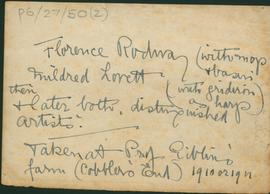 P6/27/50(2)
Florence Rodway (with mop
& basin)
Mildred Lovett (with gridiron
then as harp)
& later both distinguished
artists.
Taken at Prof Giblin's
farm (Cobblers End) 1910 or 1911